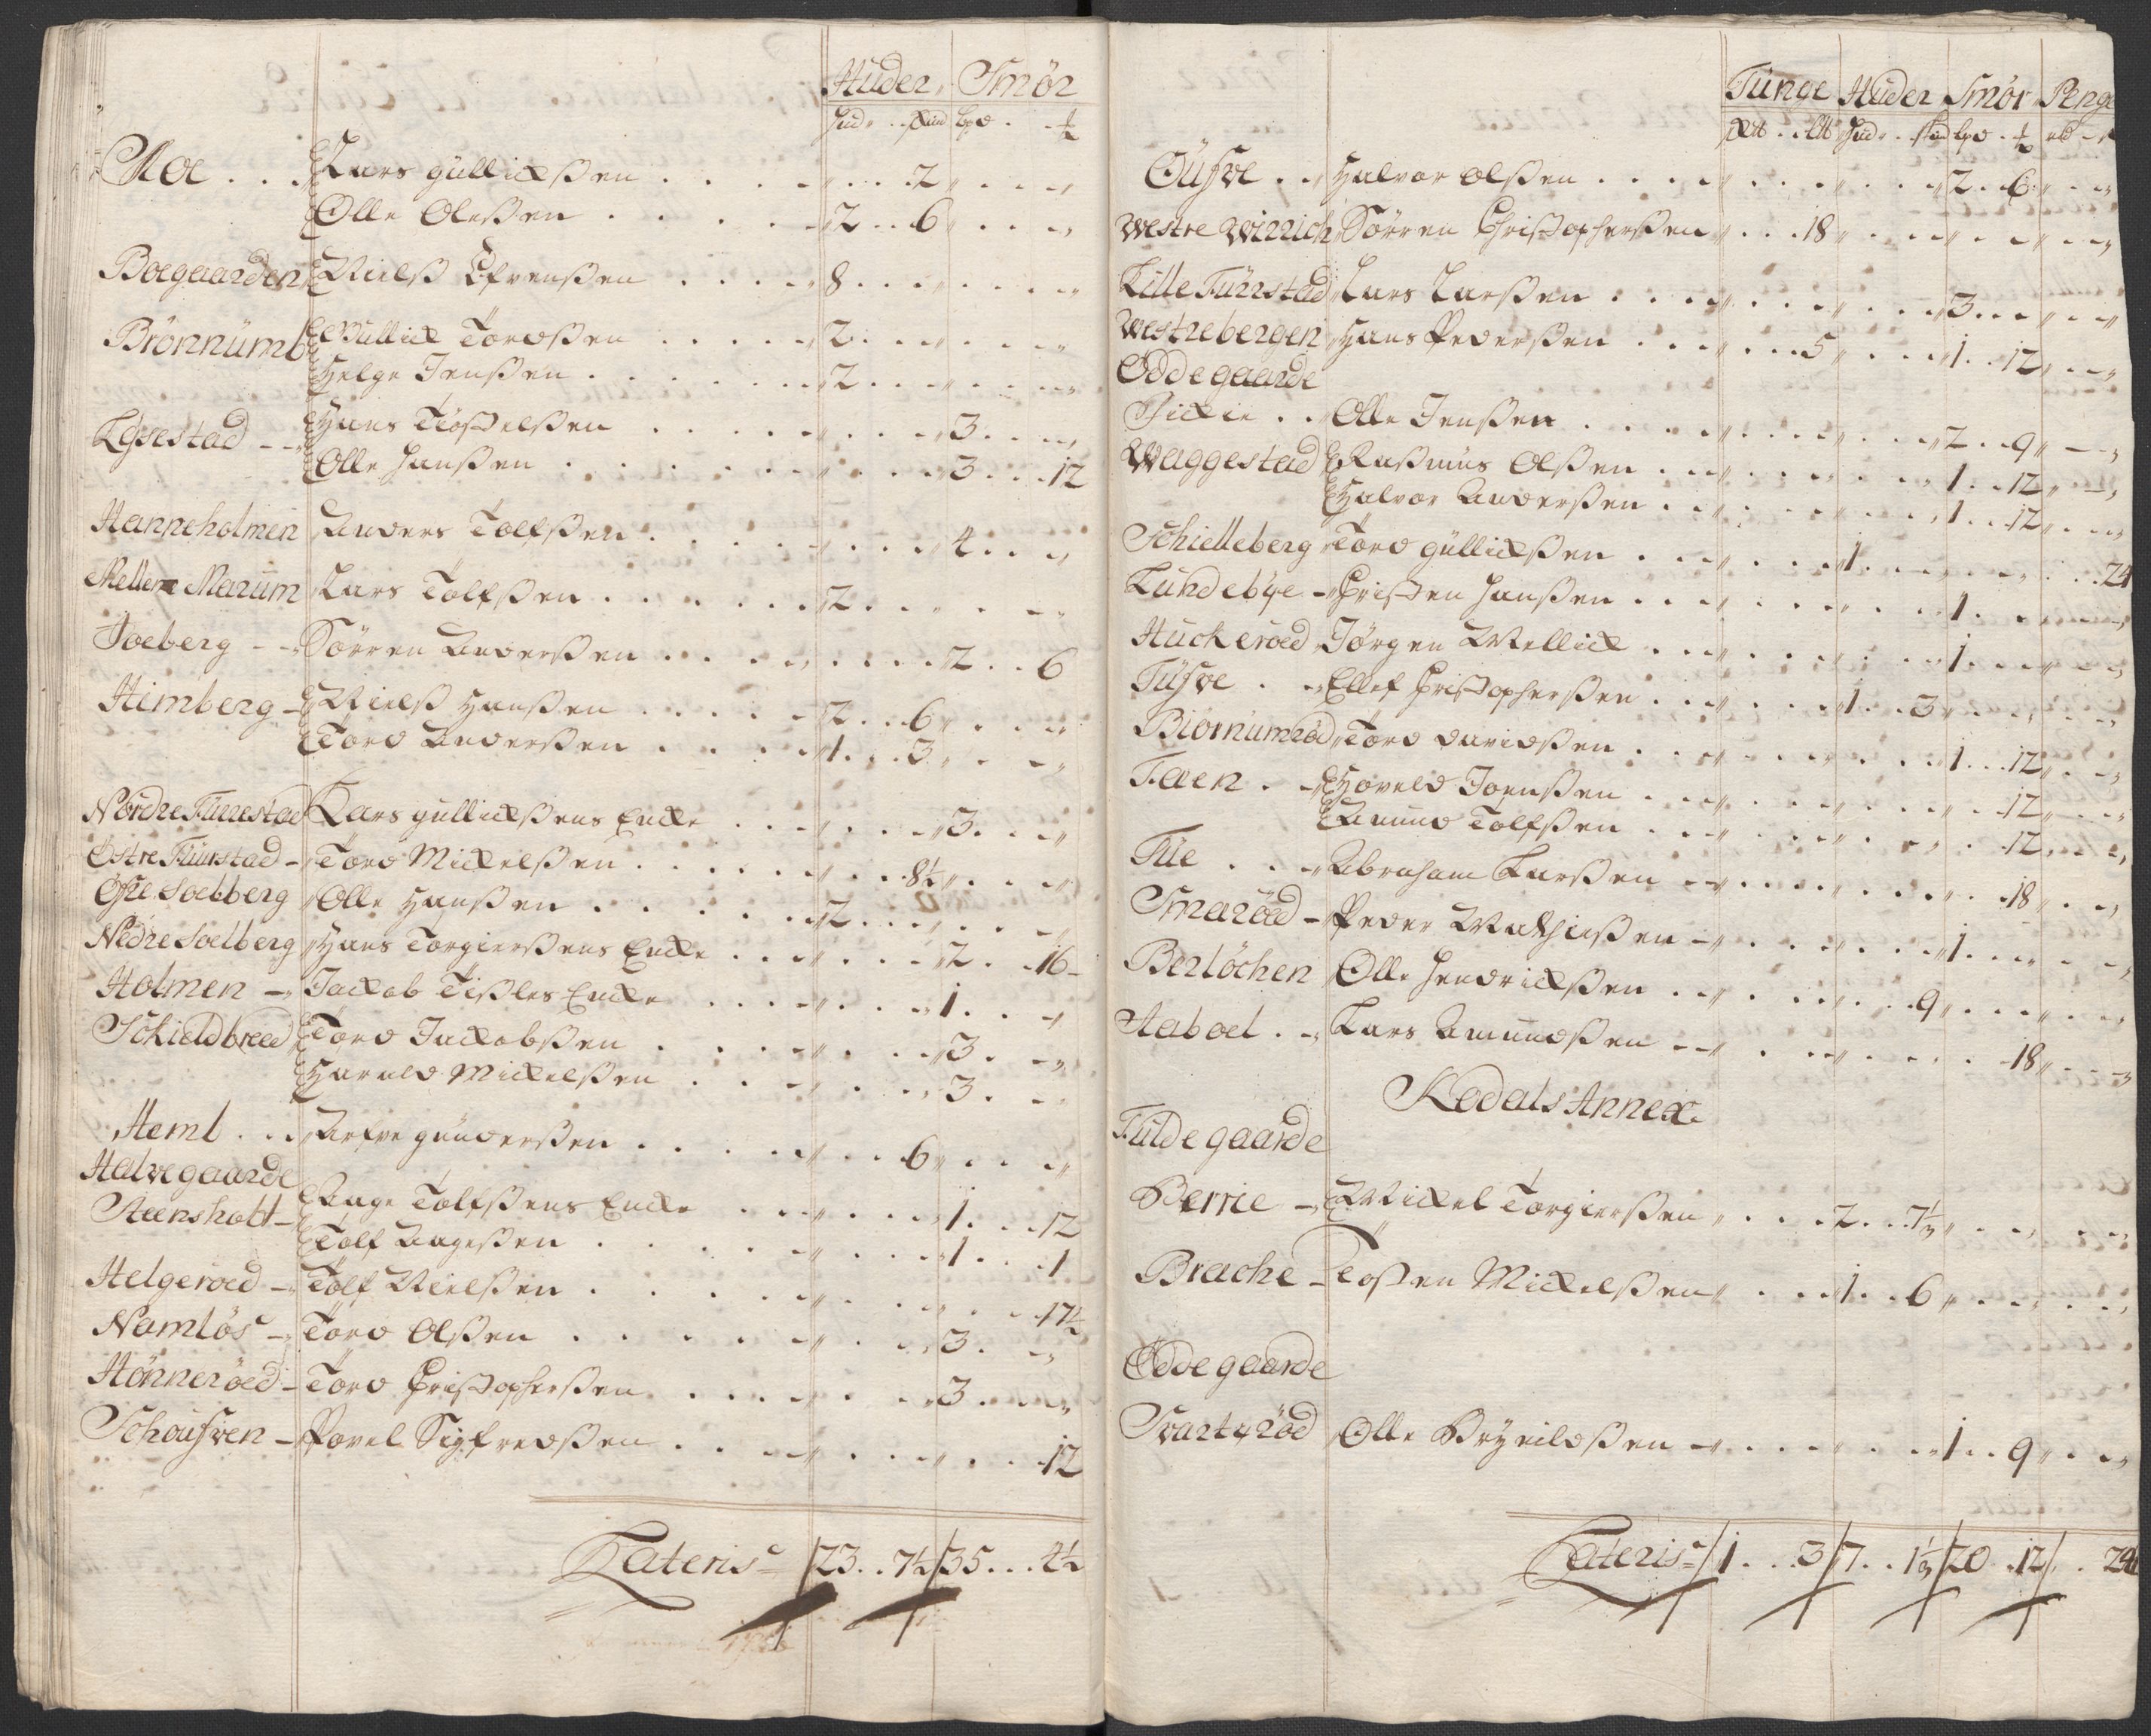 Huder Smör
Hud. Skind Lpd.
Moe . . Lars güllichßen . . . 2
Olle Oleßen . . . 2 . . 6
Boegaarden Nielß Efvenßen . . . 8
Brönnüml Güllich Tordßen . . . 2
Helge Jenßen . . . 2
Løvestad Hans Tiößtelßen . . . 3
Olle Hanßen . . . 3 . . 12
Hanneholmen Anders Tolfßen . . . 4
Mellem Marum Lars Tolfßen . . . 2
Joeberg Sörren Anderßen . . . 2 . . 6
Himberg Nielß Hanßen . . . 2 . . 6
Tord Anderßen . . . 1 . . 3
Nordre Fürrestad Lars gullichßens Encke . . . 3
Östre Fürrstad Tord Mickelßen . . . 8½
Öfre Soelberg Olle Hanßen . . . 2
Nedre Soelberg Hans Torgierßens Encke . . . 2 . . 16
Holmen Jackob Tißlers Encke . . . 1
Schieldbred Tord Jackobßen . . . 3
Harald Mickelßen . . . 3
Heml . . . günderßen . . . 6
Halvegaarde
Steensholt Aage Tolfßens Encke . . . 1 . . 12
Tolf Aageßen . . . 1 . . 1
Helgeroed Tolf Nielßen . . . 17½
Namlös Tord Olßen . . . 3
Hönneröed Tord Christopherßen . . . 3
Schousven Povel Sigfredßen . . . 12
Lateris 23 . . 7½ 35 . . . 4½
Tunge Huder Smör Penge
Hud. Skind Lpd. rd
Öüfve . . Halvor Olßen . . . 2 . . 6
Westre Wirrich Sörren Christopherßen . . . 18
Lille Fürrstad Lars Larßen . . . 3
Westrebergen Hans Pederßen . . . 5 . . . 1 . . 12
Öddegaarde
Sickie . . Olle Jenßen . . . 2 . . 9
Waggestad Raßmus Olßen . . . 1 . . 12
Halvor Anderßen . . . 1 . . 12
Schielleberg Tord güllichßen . . . 1 . . . 24
Lundebÿe Christen Hanßen . . . 1
Huckeroed Jörgen Wellick . . . 1
Tüfve . . Ellef Christopherßen . . . 1 . . 3
Biornumröd Tord Davidßen . . . 1 . . 12
Faen . . Haveld Joenßen . . . 12
Amund Tolfßen . . . 12
Tüe . . Abraham Larßen . . . 18
Smaröed Peder Mathißen . . . 1
Berlöchen Olle Hendrickßen . . . 9
Haboel . . Lars Amundßen . . . 18
Kodals Annex
Fuldegaarde
Berrie Mickel Torgierßen . . . 2 . . 7½
Brache Toßten Mickelßen . . . 1 . . 6
Öddegaarde
Svartzröd Olle Brÿnildßen . . . 1 . . 9
Lateris 1 . . 3 7 . . 1½ 20 . . 12 . . 24